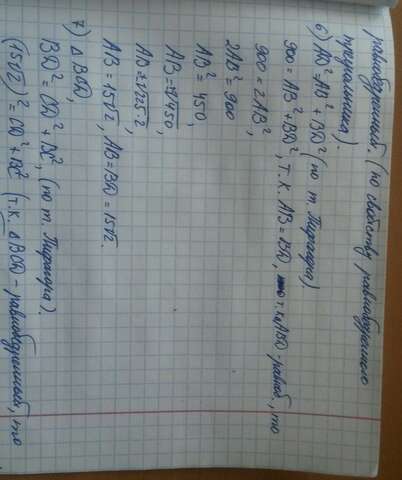 равнобедренный. (по свойству равнобедренного
треугольника).
6) AD²=AB²+BD² (по т. Пифагора)
900=AB²+BD², т.к. AB=BD, т.к. ABD-равноб., то
900=2AB²,
2AB²=900
AB²=450,
AB=√450,
AB=√225·2
AB=15√2, AB=BD=15√2.
7) ΔBCD,
BD²=CD²+BC², (по т. Пифагора).
(15√2)²=CD²+BC² (т.к. ΔBCD-равнобедренный, то